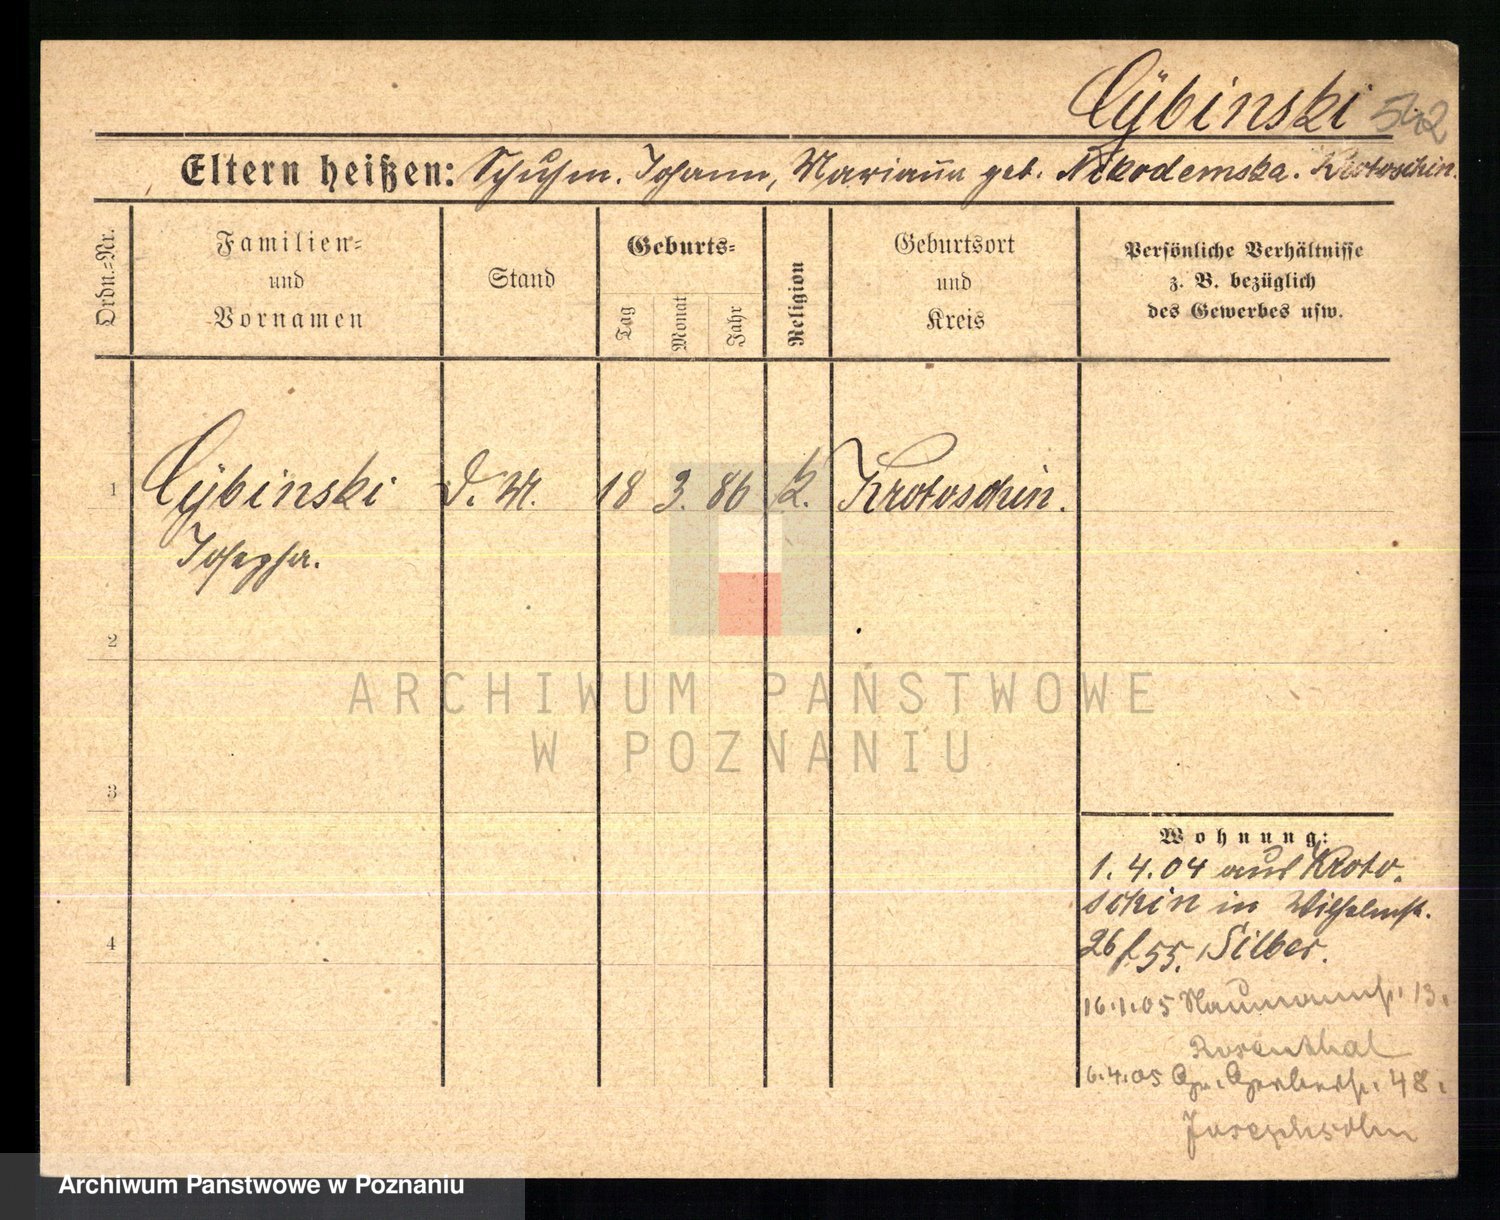 Cÿbinski 542
Eltern heißen: Schuhm. Johann, Marianna geb. Nikodemska. Krotoschin.
Ordn.-Nr.
Familien-
und
Vornamen
Stand
Geburts-
Tag
Monat
Jahr
Religion
Geburtsort
und
Kreis
Persönliche Verhältnisse
z. B. bezüglich
des Gewerbes usw.
1 Cÿbinski D. M. 18 3. 86 k. Krotoschin.
Josepha.
2
ARCHIWUM PAŃSTWOWE
W POZNANIU
3
Wohnung:
1.4.04 aus Kroto-
schin in Wilhelmst.
4
26 / 55. Silber.
16.1.05 Naumannst. 13.
Rosenthal
6.4.05 Gr. Gerberst. 48.
Josephsohn
Archiwum Państwowe w Poznaniu